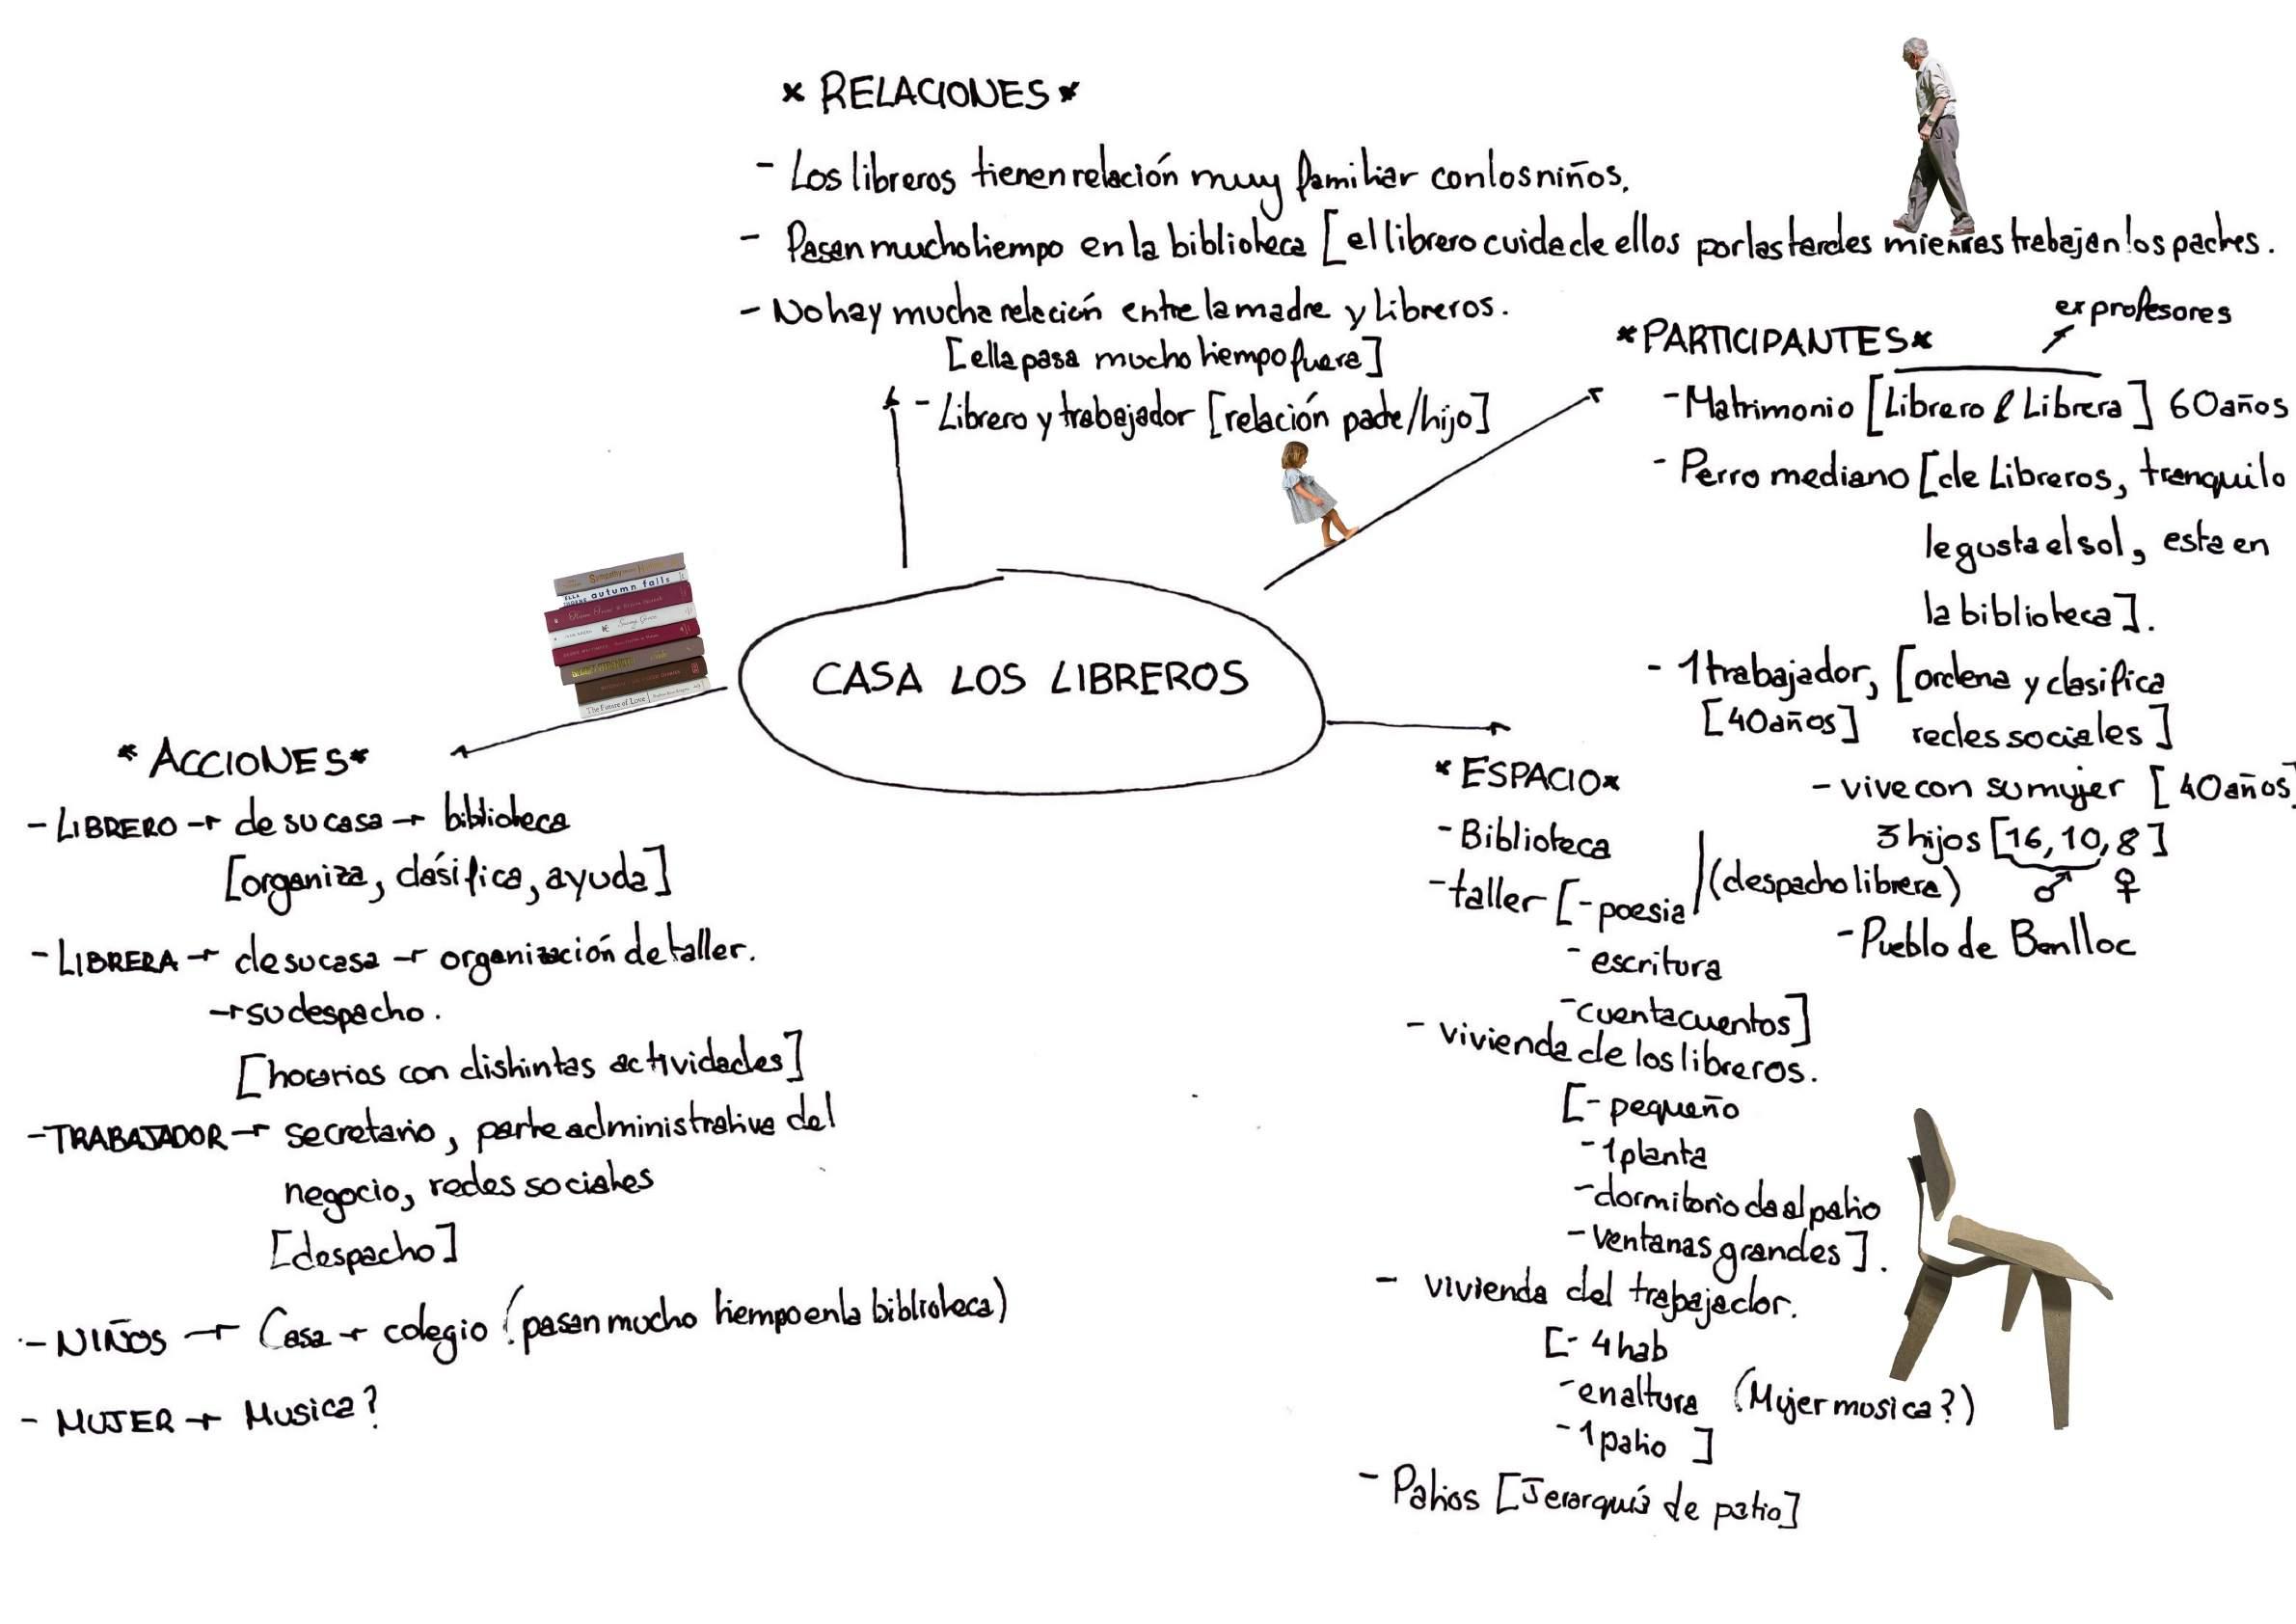 * RELACIONES *
- Los libreros tienen relación muy familiar con los niños.
- Pasan mucho tiempo en la biblioteca [el librero cuida de ellos por las tardes mientras trabajan los padres.
- No hay mucha relación entre la madre y Libreros.
[ella pasa mucho tiempo fuera]
- Librero y trabajador [relación padre/hijo]
ex profesores
* PARTICIPANTES *
- Matrimonio [Librero & Librera] 60 años
- Perro mediano [de Libreros, tranquilo
le gusta el sol, esta en
la biblioteca].
- 1 trabajador, [ordena y clasifica
[40 años] redes sociales]
- vive con su mujer [40 años]
3 hijos [16, 10, 8]
♂ ♀
- Pueblo de Benlloc
CASA LOS LIBREROS
autumn falls
The Future of Love
* ACCIONES *
- LIBRERO → de su casa → biblioteca
[organiza, clásifica, ayuda]
- LIBRERA → de su casa → organización de taller.
→ su despacho.
[horarios con distintas actividades]
- TRABAJADOR → secretario, parte administrativa del
negocio, redes sociales
[despacho]
- NIÑOS → Casa → colegio (pasan mucho tiempo en la biblioteca)
- MUJER → Musica?
* ESPACIO *
- Biblioteca
- taller [- poesia (despacho librera)
- escritura
- cuentacuentos]
- vivienda de los libreros.
[- pequeño
- 1 planta
- dormitorio da al patio
- ventanas grandes].
- vivienda del trabajador.
[- 4 hab
- en altura (Mujer musica?)
- 1 patio ]
- Patios [Jerarquía de patio]